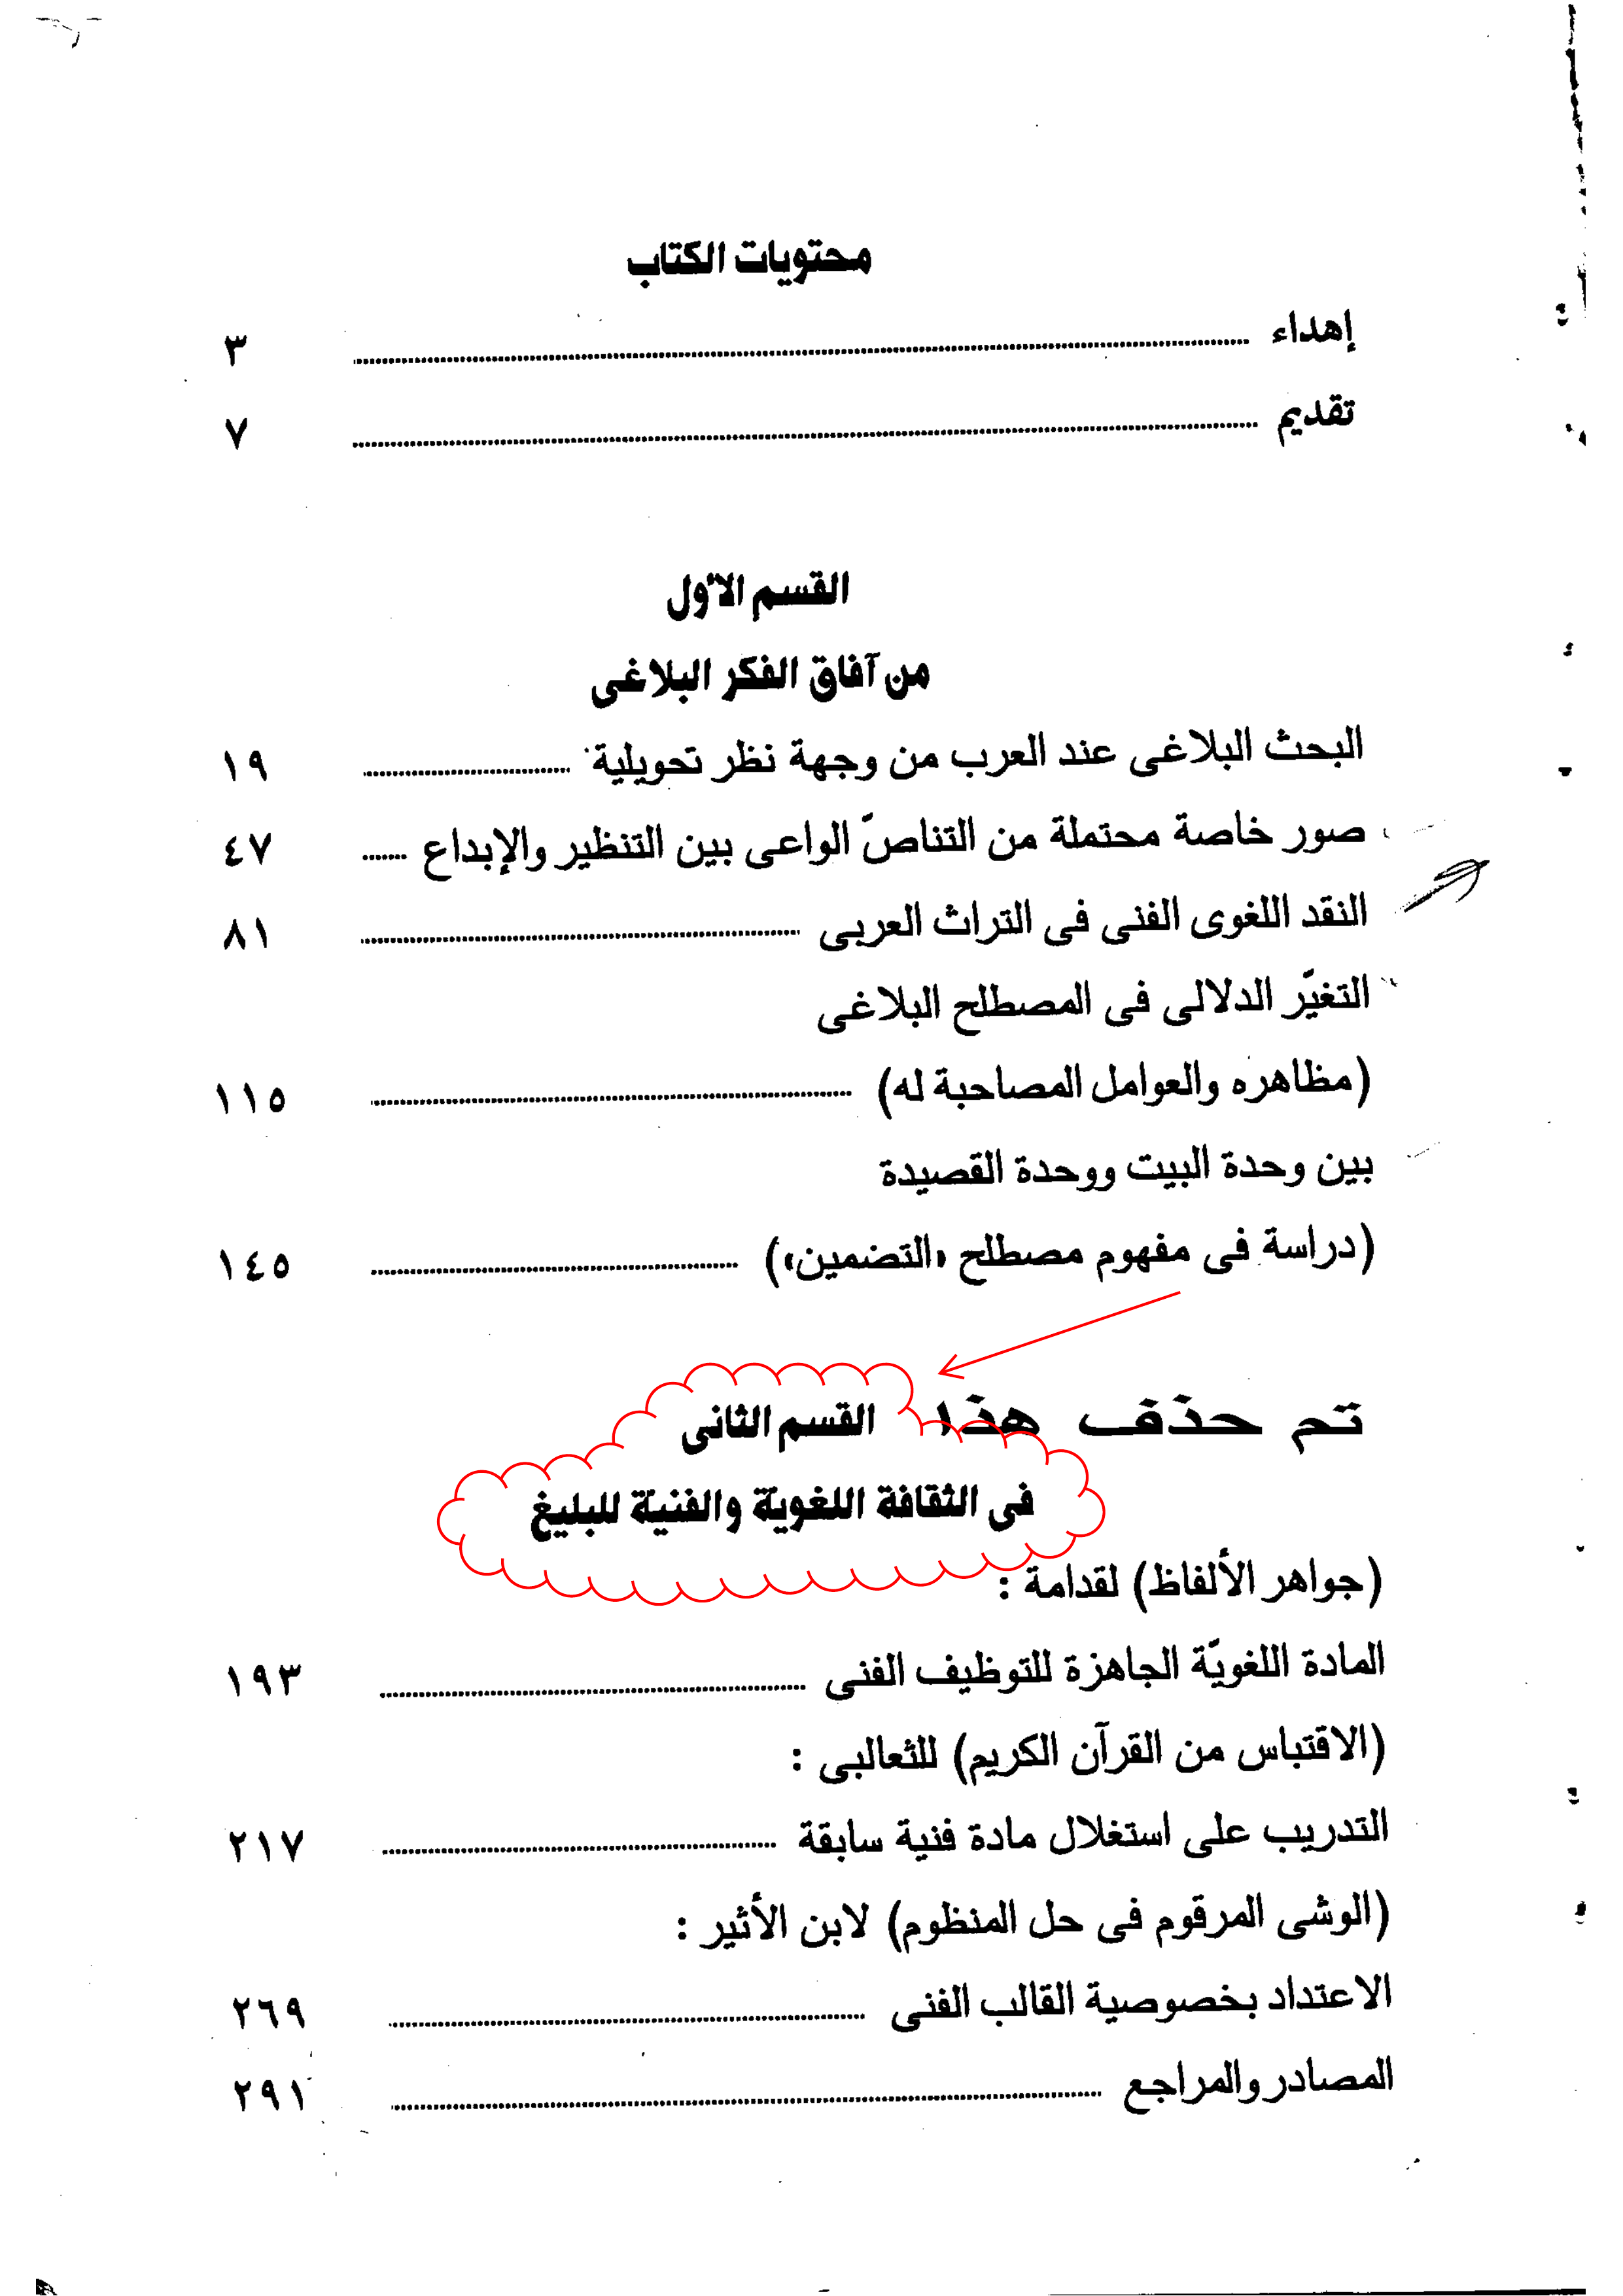 محتويات الكتاب
إهداء ٣
تقديم ٧
القسم الأول
من آفاق الفكر البلاغى
البحث البلاغى عند العرب من وجهة نظر تحويلية ١٩
صور خاصة محتملة من التناصّ الواعى بين التنظير والإبداع ٤٧
النقد اللغوى الفنى فى التراث العربى ٨١
التغيّر الدلالى فى المصطلح البلاغى
(مظاهره والعوامل المصاحبة له) ١١٥
بين وحدة البيت ووحدة القصيدة
(دراسة فى مفهوم مصطلح «التضمين») ١٤٥
تم حذف هذا القسم الثانى
فى الثقافة اللغوية والفنية للبليغ
(جواهر الألفاظ) لقدامة :
المادة اللغويّة الجاهزة للتوظيف الفنى ١٩٣
(الاقتباس من القرآن الكريم) للثعالبى :
التدريب على استغلال مادة فنية سابقة ٢١٧
(الوشى المرقوم فى حل المنظوم) لابن الأثير :
الاعتداد بخصوصية القالب الفنى ٢٦٩
المصادر والمراجع ٢٩١